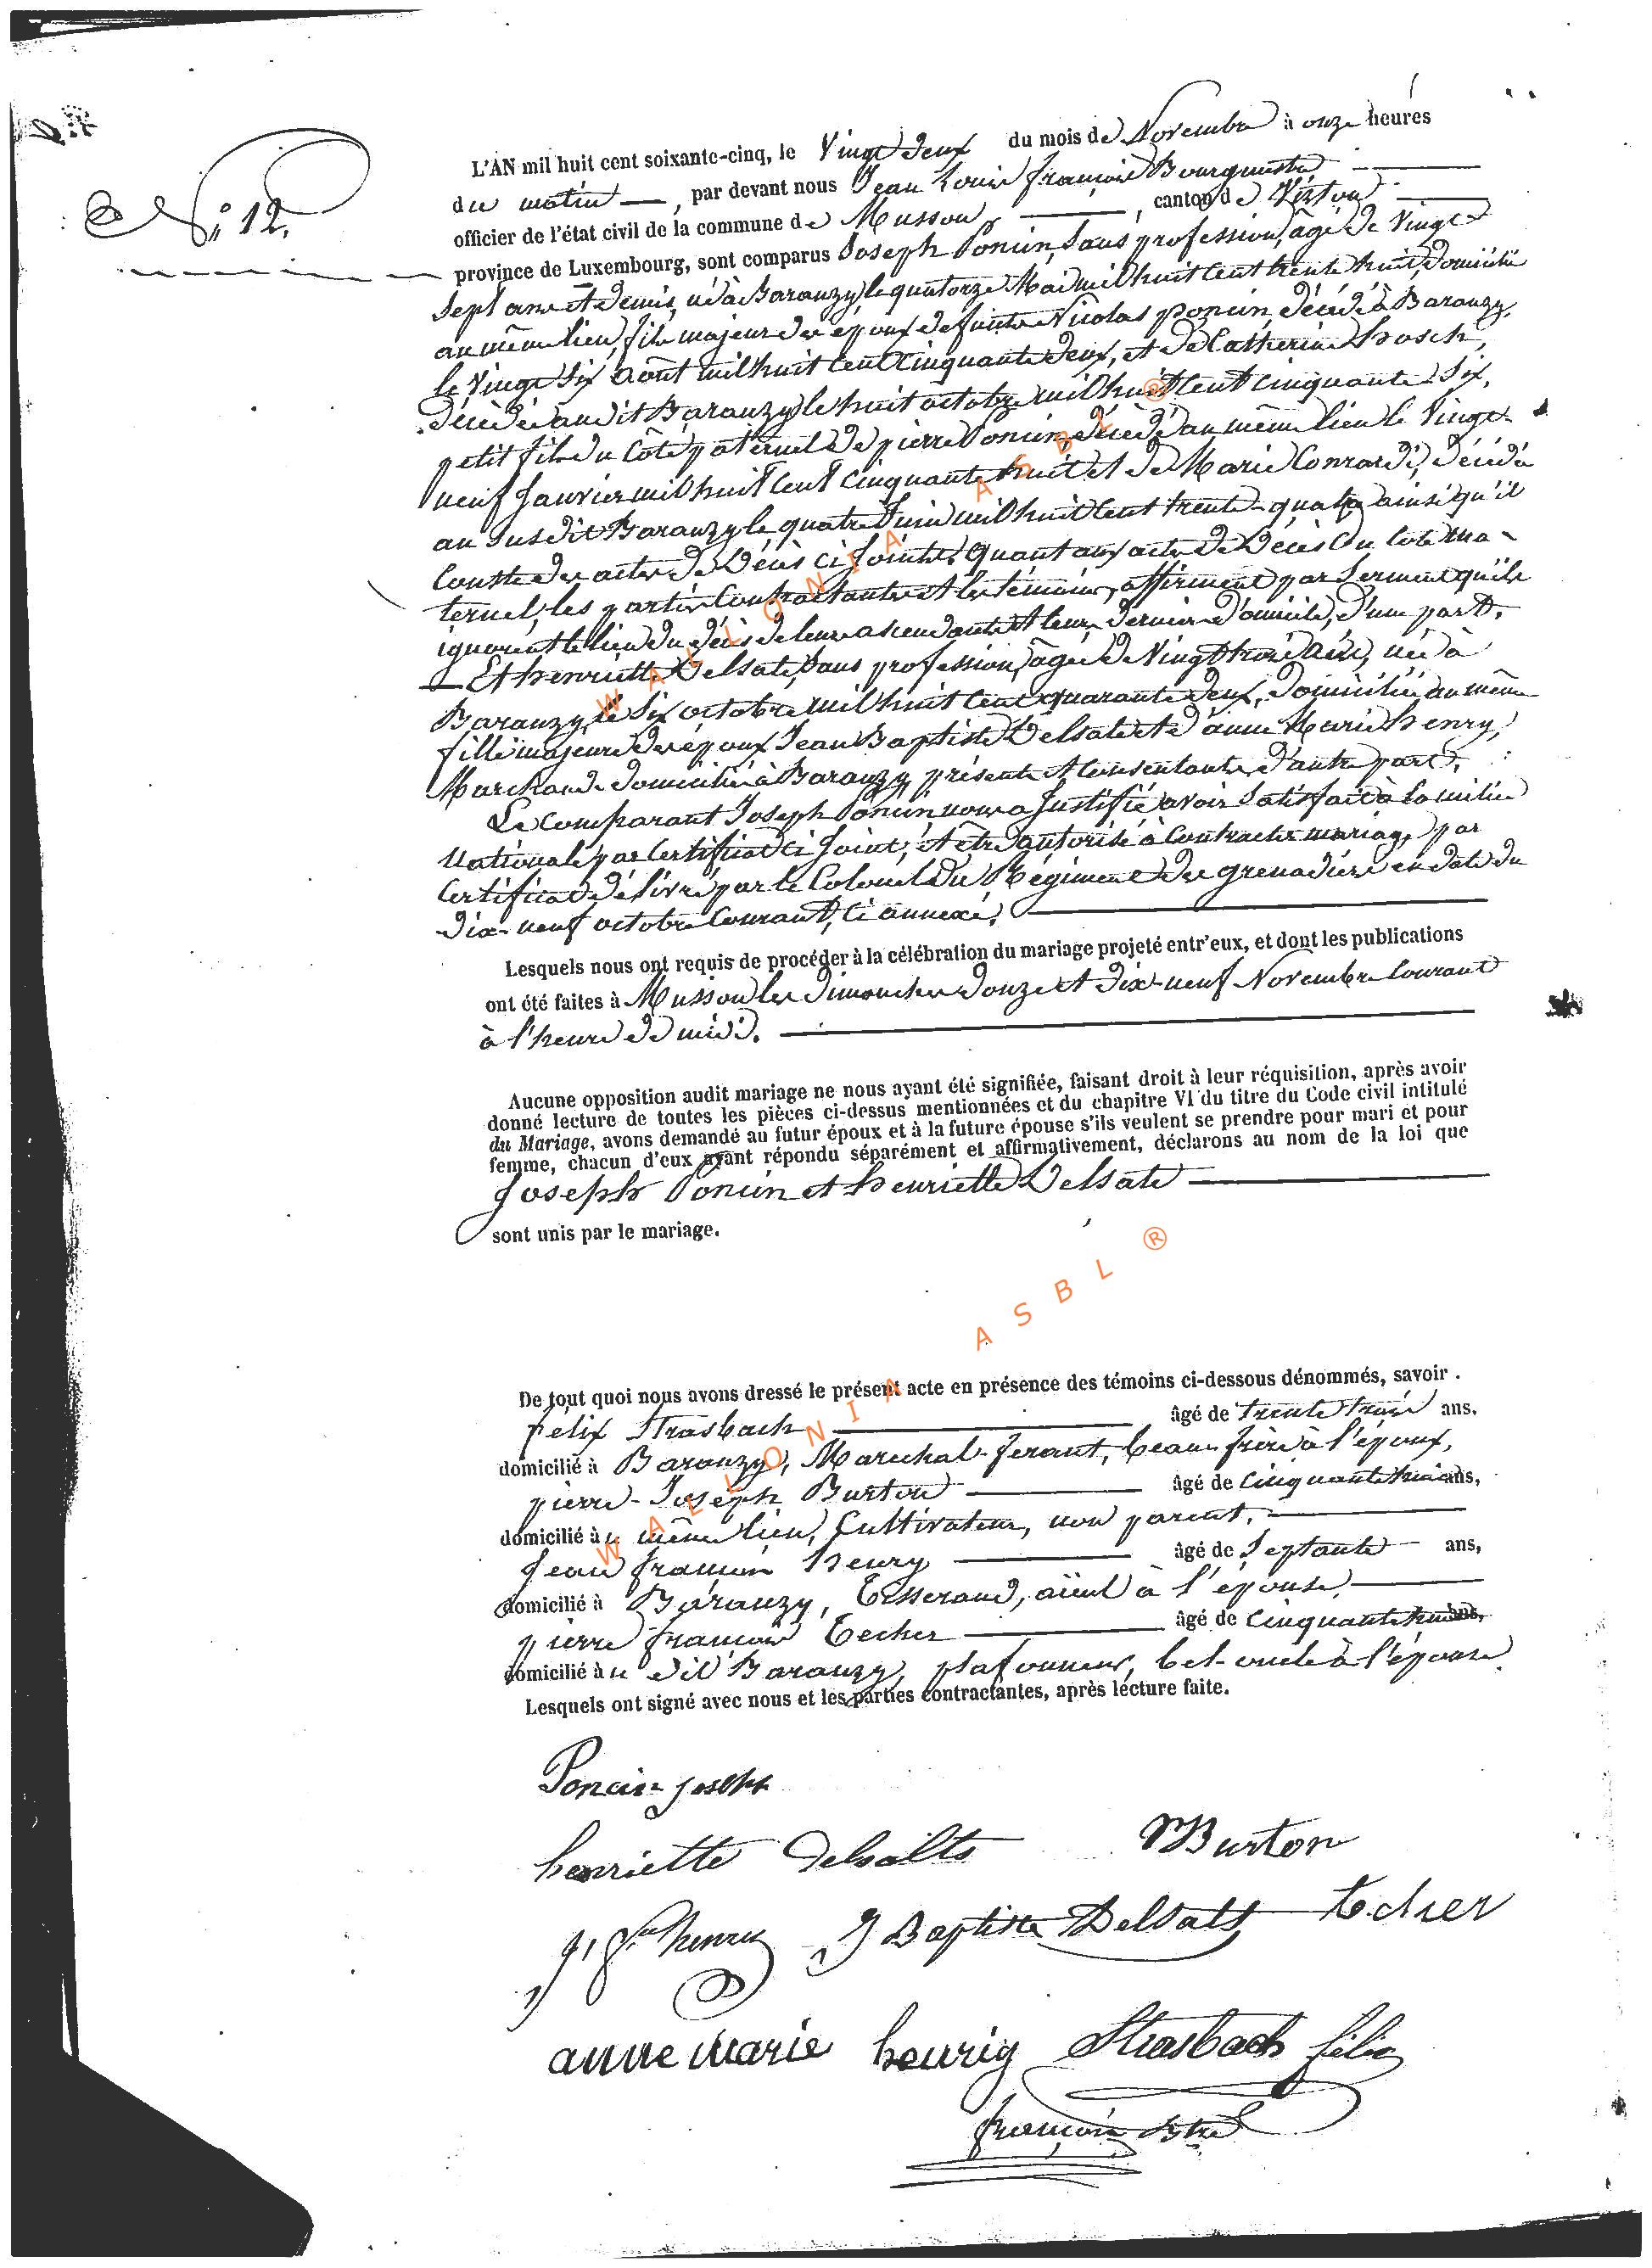 N° 12.
L'AN mil huit cent soixante-cinq, le Vingt deux du mois de Novembre à onze heures
du matin, par devant nous Jean Louis François Bourgmestre
officier de l'état civil de la commune de Musson, canton de Virton
province de Luxembourg, sont comparus Joseph Poncin, sans profession, âgé de Vingt
sept ans et demis, né à Baranzy le quatorze Mai mil huit cent trente huit, domicilié
au même lieu, fils majeur des époux defunts Nicolas poncin, décédé à Baranzy,
le Vingt Six août mil huit cent Cinquante deux, et de Catherine hosch,
décédée audit Baranzy le huit octobre mil huit cent cinquante Six,
petit fils du Côté paternel de pierre Poncin, décédé au même lieu le Vingt
neuf Janvier mil huit cent cinquante huit et de Marie Conrardi, décédée
au susdit Baranzy le quatre Juin mil huit cent trente-quatre ainsi qu'il
Conste des actes de Décès ci Joints, Quant aux actes de Décès du Coté ma-
ternel, les parties Contractantes et les témoins, affirment par Serment qu'ils
ignorent le lieu du décès de leurs ascendants et leur dernier domicile, d'une part.
Et henriette Delsate, sans profession, âgée de Vingt trois ans, née à
Baranzy, le Six octobre mil huit cent quarante deux, domiciliée au même
fille majeure des époux Jean Baptiste Delsate et d'anne Marie henry,
Marchands domiciliés à Baranzy, présents et consentants, d'autre part.
Le Comparant Joseph Poncin nous a Justifié avoir Satisfait à la milice
Nationale par Certificat ci Joint, et être autorisé à Contracter mariage, par
Certificat délivré par le Colonel du Régiment des grenadiers en date du
dix-neuf octobre Courant, ci annexé.
Lesquels nous ont requis de procéder à la célébration du mariage projeté entr'eux, et dont les publications
ont été faites à Musson les dimanches douze et dix-neuf Novembre Courant
à l'heure de midi.
Aucune opposition audit mariage ne nous ayant été signifiée, faisant droit à leur réquisition, après avoir
donné lecture de toutes les pièces ci-dessus mentionnées et du chapitre VI du titre du Code civil intitulé
du Mariage, avons demandé au futur époux et à la future épouse s'ils veulent se prendre pour mari et pour
femme, chacun d'eux ayant répondu séparément et affirmativement, déclarons au nom de la loi que
Joseph Poncin et henriette Delsate
sont unis par le mariage.
De tout quoi nous avons dressé le présent acte en présence des témoins ci-dessous dénommés, savoir.
félix Strasbach âgé de trente trois ans.
domicilié à Baranzy, Marechal-ferant, beau-frère à l'époux,
pierre-Joseph Burton âgé de cinquante ans,
domicilié au même lieu, Cultivateur, non parent.
Jean françois henry âgé de Septante ans,
domicilié à Baranzy, Tisserand, aïeul à l'épouse
pierre françois Techer âgé de cinquante ans,
domicilié au dit Baranzy, plafonneur, bel-oncle à l'épouse.
Lesquels ont signé avec nous et les parties contractantes, après lecture faite.
Poncin joseph
henriette delsalte Burton
henry J Baptiste Delsatt techer
anne marie henrig Strasbach félix
françois
WALLONIA ASBL ®
WALLONIA ASBL ®